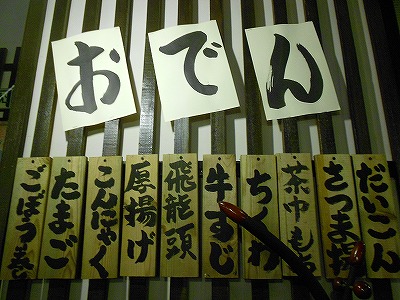 おでん
だいこん
さつま揚
茶巾もち
ちくわ
牛すじ
飛龍頭
厚揚げ
こんにゃく
たまご
ごぼう